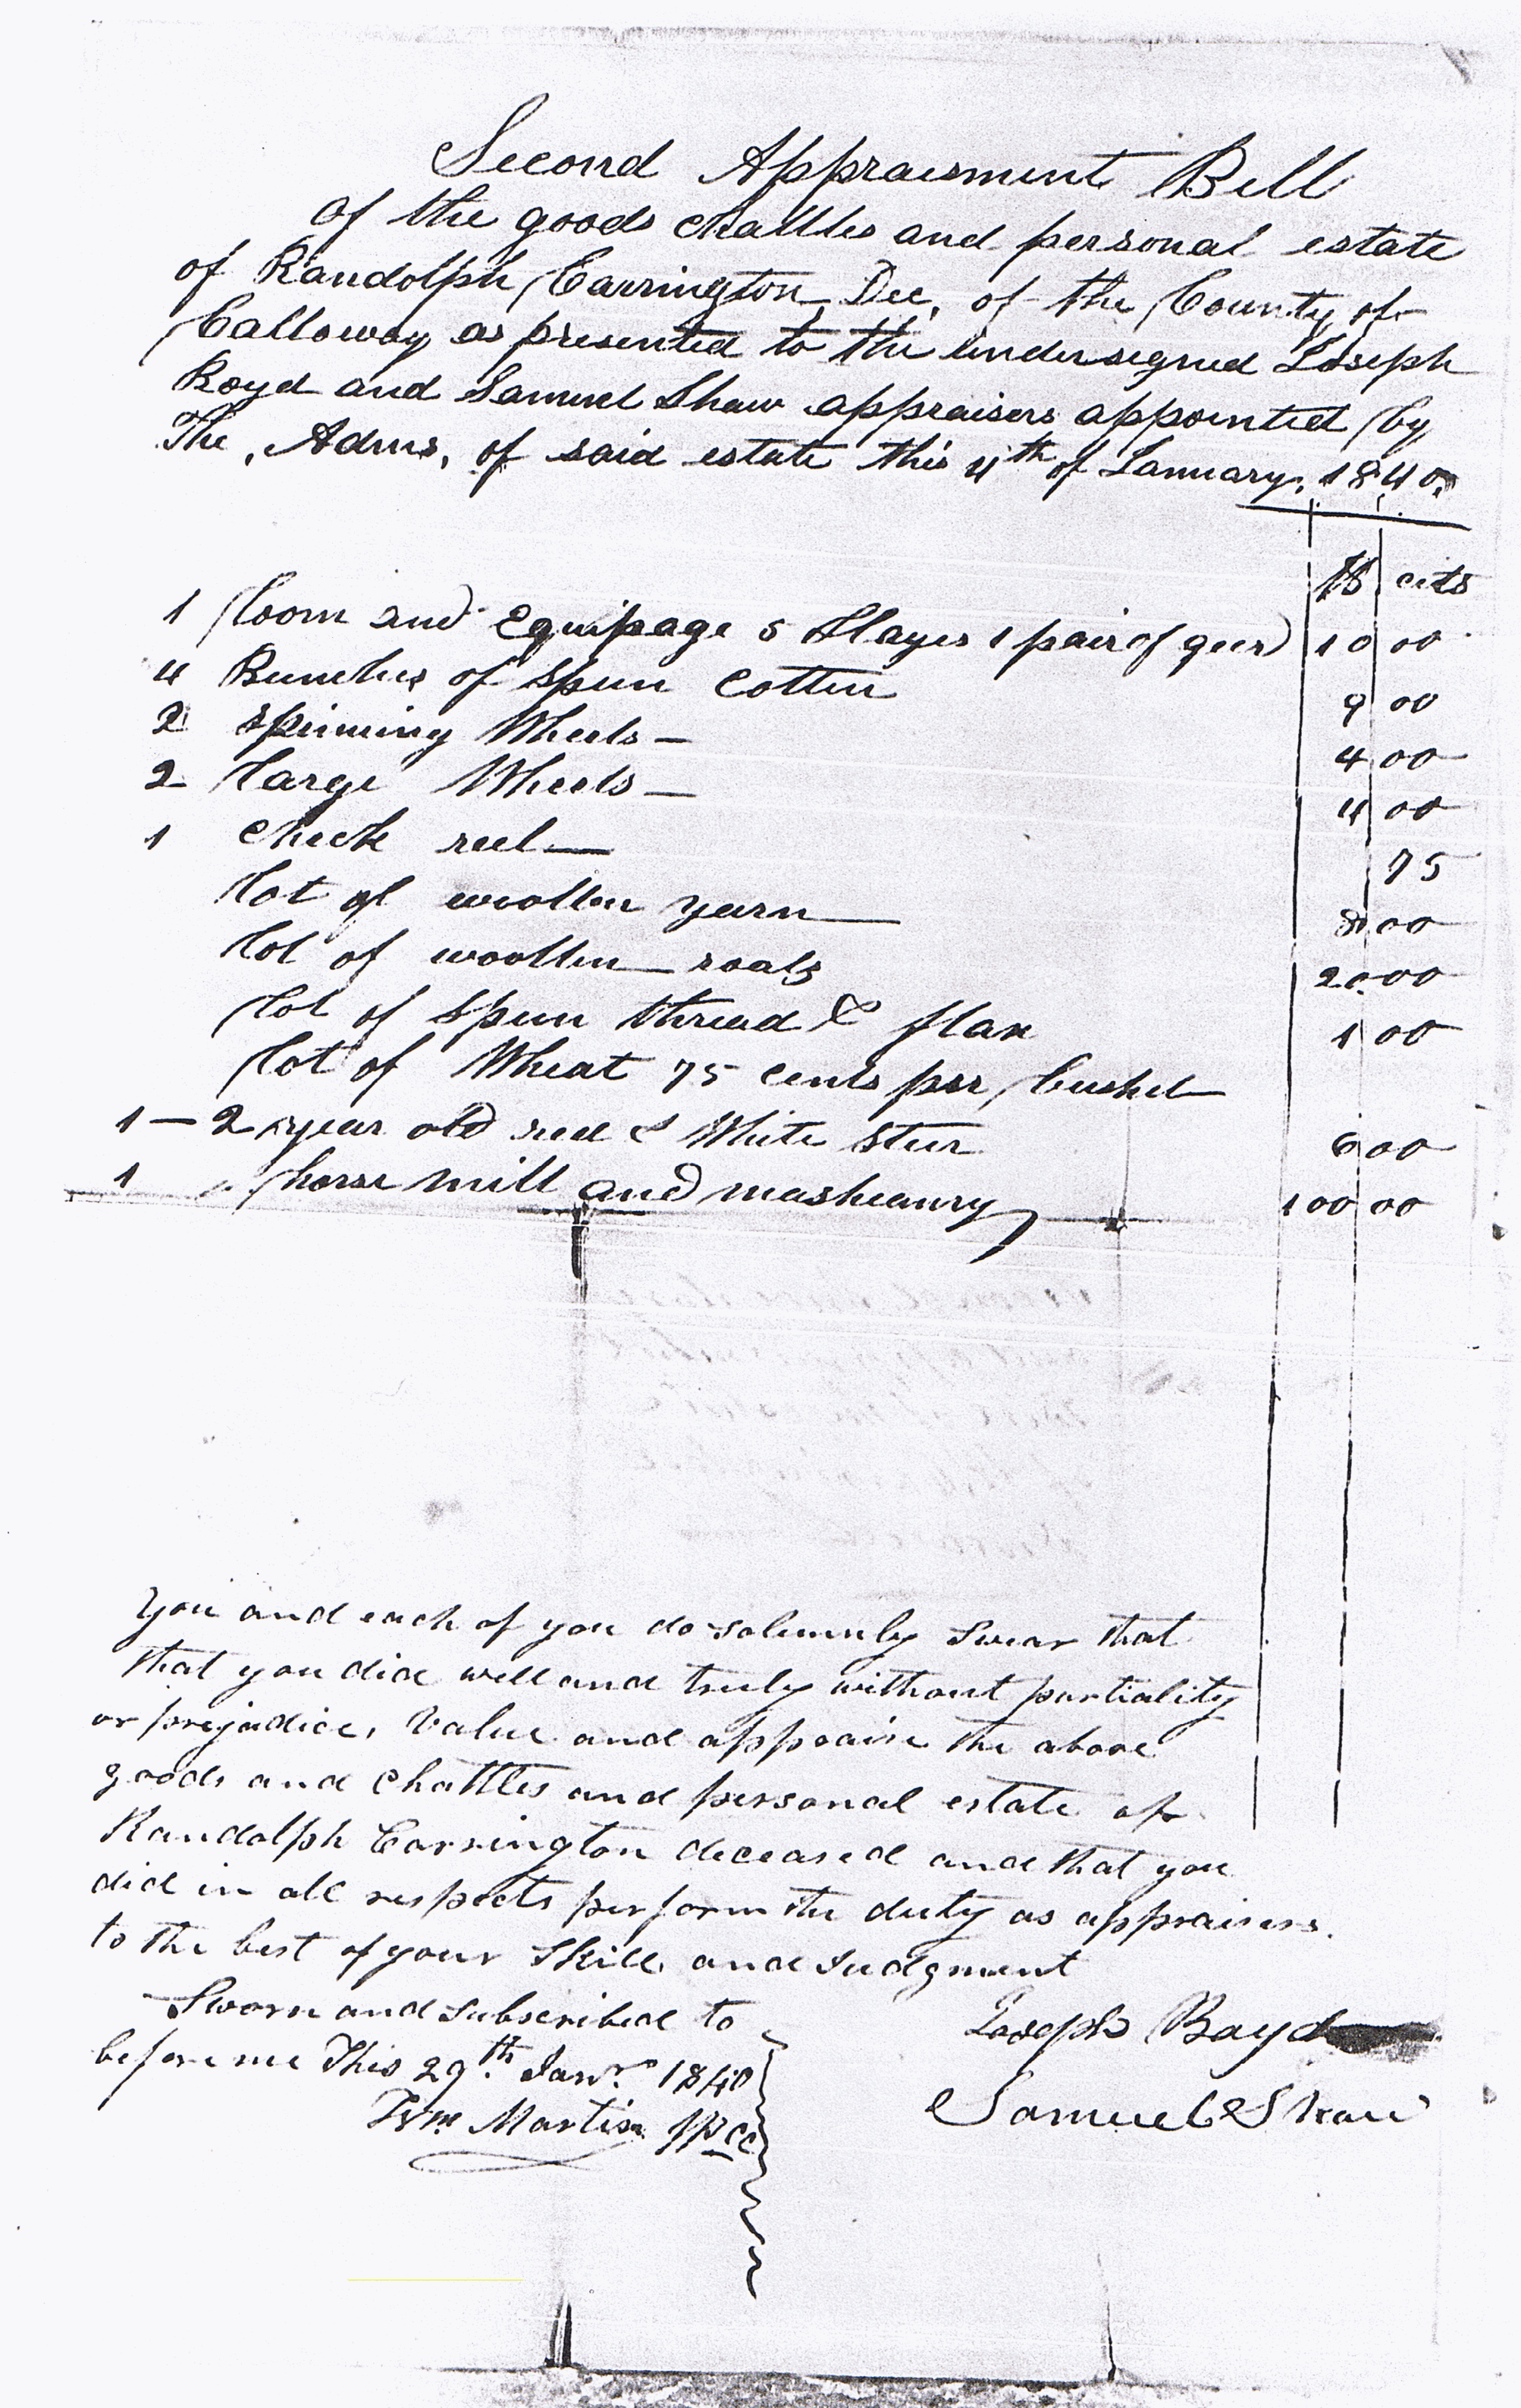 Second Appraisment Bill
of the goods chattles and personal estate
of Randolph Carrington, Dec, of the County of
Calloway as presented to the undersigned Joseph
Boyd and Samuel Shaw appraisers appointed by
The, Adms, of said estate this 4th of January, 1840.
$ cts
1 loom and Equipage 5 Slayes 1 pair of geer 10 00
4 Bunches of Spun Cotten 9 00
2 Spinning Wheels — 4 00
2 large Wheels — 4 00
1 Check reel — 75
lot of woollen yarn — 8 00
lot of woollen roals 20 00
lot of Spun thread & flax 1 00
lot of Wheat 75 cents per bushel
1 — 2 year old red & White Steer 6 00
1 horse mill and masheanry 100 00
You and each of you do solemnly Swear that
that you did well and truly without partiality
or prejudice, Value and appraise the above
goods and Chattles and personal estate of
Randolph Carrington deceased and that you
did in all respects perform the duty as appraisers
to the best of your Skill and Judgment
Sworn and Subscribed to
before me This 29th Jany 1840
Wm Martin JPCC
Joseph Boyd
Samuel Shaw